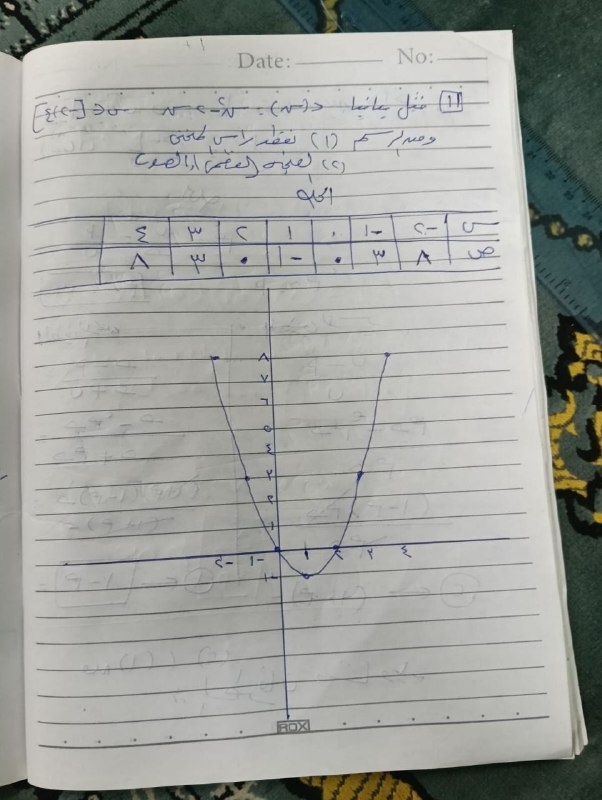 Date: No:
١١ مثل بيانيا د(س) = س٢ - ٢س س ∈ [-٢،٤]
ومن الرسم (١) نقطة رأس المنحنى
(٢) القيمة العظمى أو الصغرى
الحل
س -٢ -١ ٠ ١ ٢ ٣ ٤
ص ٨ ٣ ٠ -١ ٠ ٣ ٨
٨
٧
٦
٥
٤
٣
٢
١
-٢ -١ ١ ٢ ٣ ٤
-١
ROX